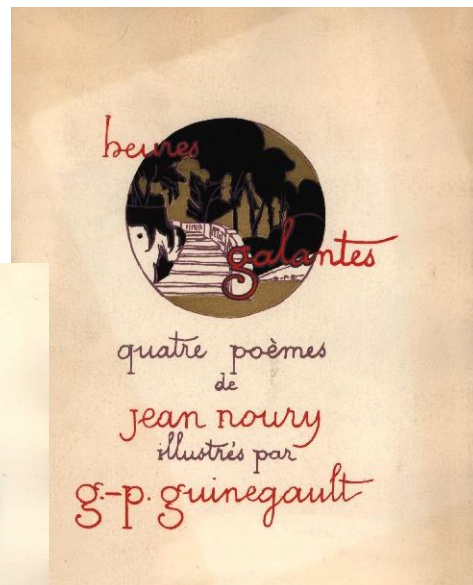 heures
galantes
quatre poèmes
de
jean noury
illustrés par
g.-p. guinegault